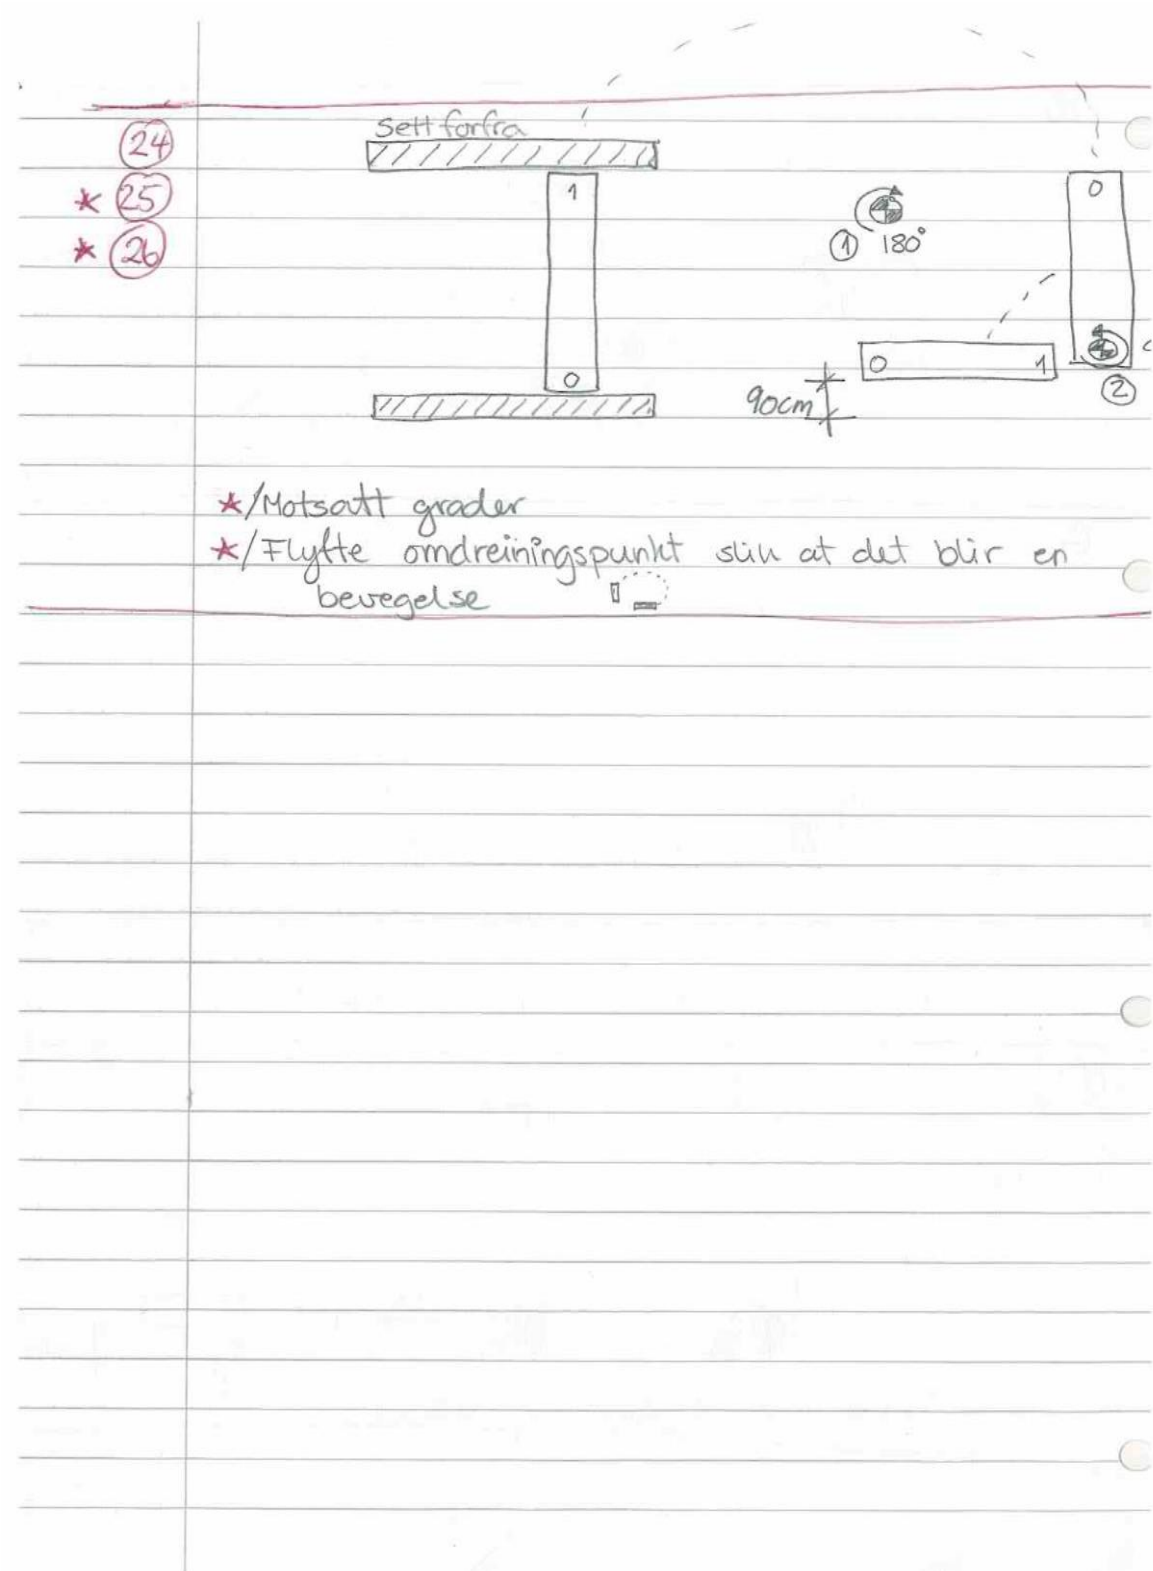 24
* 25
* 26
Sett forfra
1
0
1 180°
0
0 1
2
90cm
*/Motsatt grader
*/Flytte omdreiningspunkt slik at det blir en
bevegelse